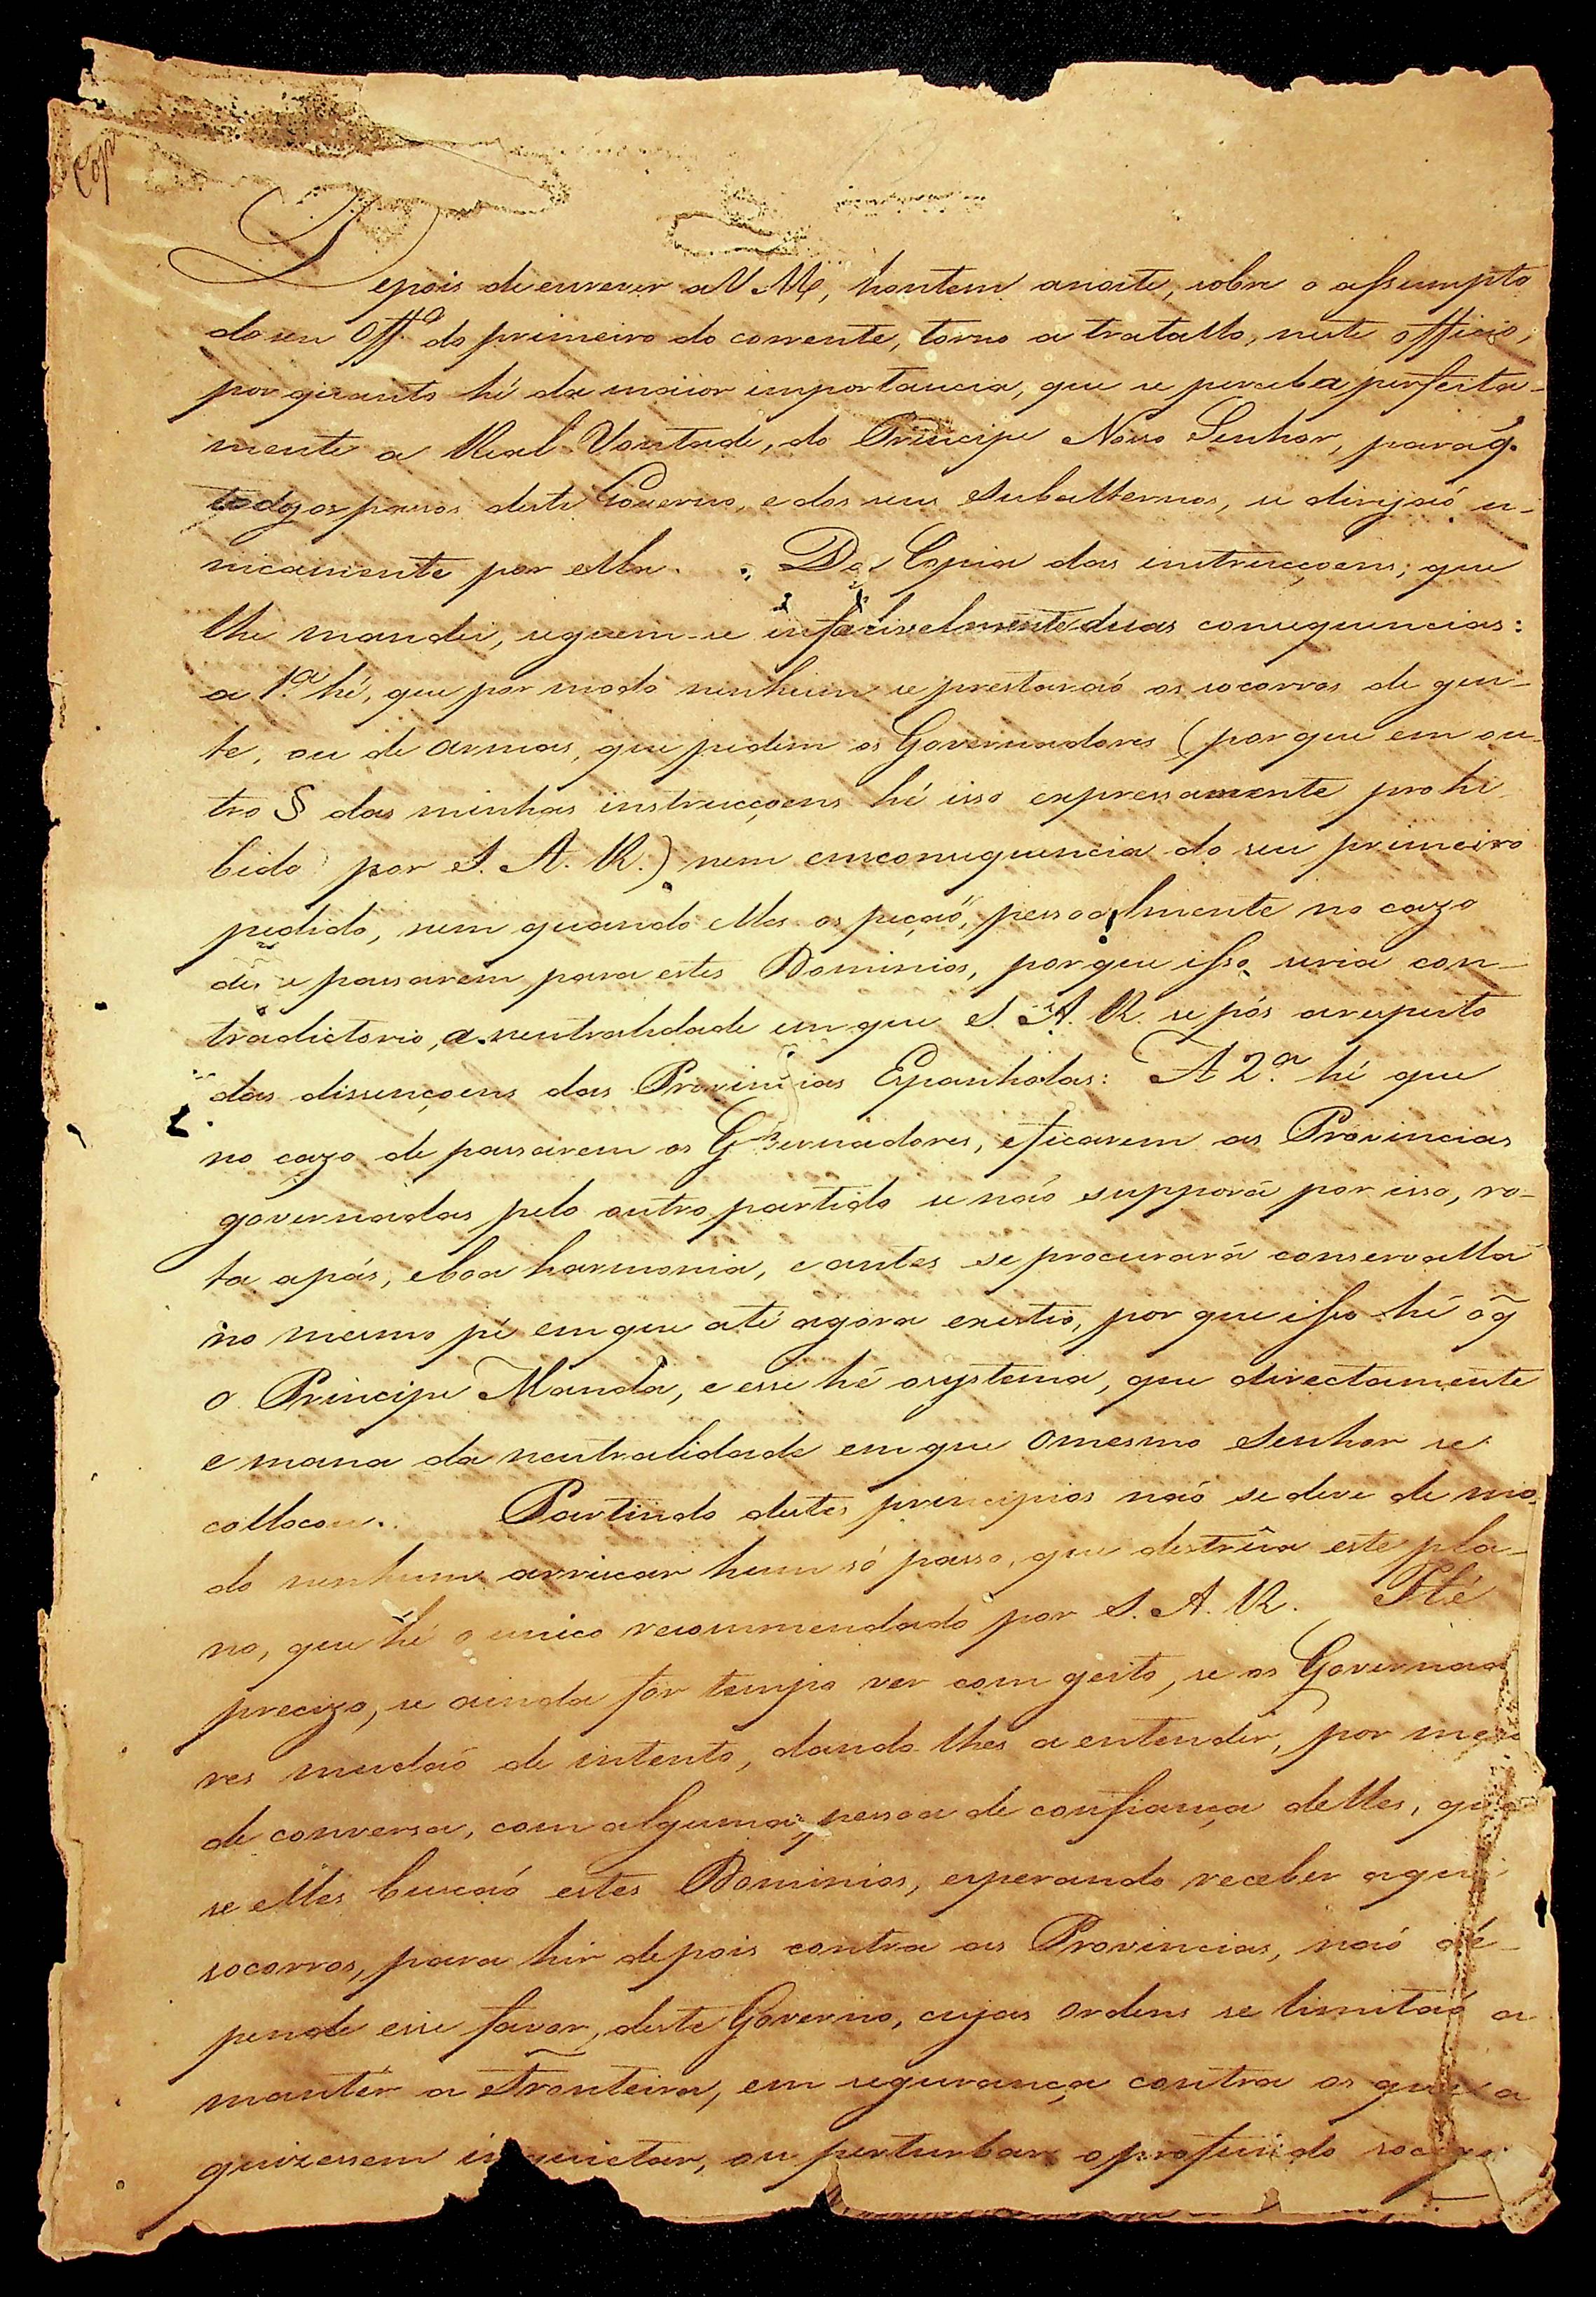 Cop
Depois de escrever a V M.ce, hontem anoite, sobre o assumpto
do seu Off.º do primeiro do corrente, torno a tratallo, neste officio,
por quanto hé da maior importancia, que se perceba perfeita-
mente a Real Vontade, do Principe Nosso Senhor, para q̃.
todos os passos deste Governo, e dos seus subalternos, se dirijaó u-
nicamente por ella. Da Copia das instrucçoens, que
lhe mandei, seguem-se infalivelmente duas consequencias:
a 1.ª hé, que por modo nenhum se prestaraó os socorros de gen-
te, ou de armas, que pedem os Governadores (por que em ou-
tro § das minhas instrucçoens hé isso expressamente prohi-
bido por S. A. R.) nem emconsequencia do seu primeiro
pedido, nem quando elles os peçaó, pessoalmente no cazo
de se passarem para estes Dominios, por que isso seria con-
tradictorio, a neutralidade em que S. A. R. se pós arespeito
das dissençoens das Provincias Espanholas: A 2.ª hé que
no cazo de passarem os Governadores, eficarem as Provincias
governadas pelo outro partido se naó supporá por isso, ro-
ta apás, eboa harmonia, e antes se procurará conservalla
no mesmo pé emque até agora existio, por que isso hé o q̃
o Principe Manda, e esse hé osystema, que directamente
emana da neutralidade emque omesmo Senhor se
collocou. Partindo destes principios naó se deve de mo-
do nenhum arriscar hum só passo, que destrûa este pla-
no, que hé o unico recommendado por S. A. R. Hé
precizo, se ainda fór tempo ver com geito, se os Governado
res mudaó de intento, dando-lhes a entender, por meio
de conversa, com alguma pessoa de confiança delles, que
se elles buscaó estes Dominios, esperando receber aqui
socorros, para hir depois contra as Provincias, naó dé-
pende esse favor, deste Governo, cujas ordens se limitaó a
mantér a Fronteira, em segurança contra os que a
quizessem inquietar, ou perturbar o profundo socego